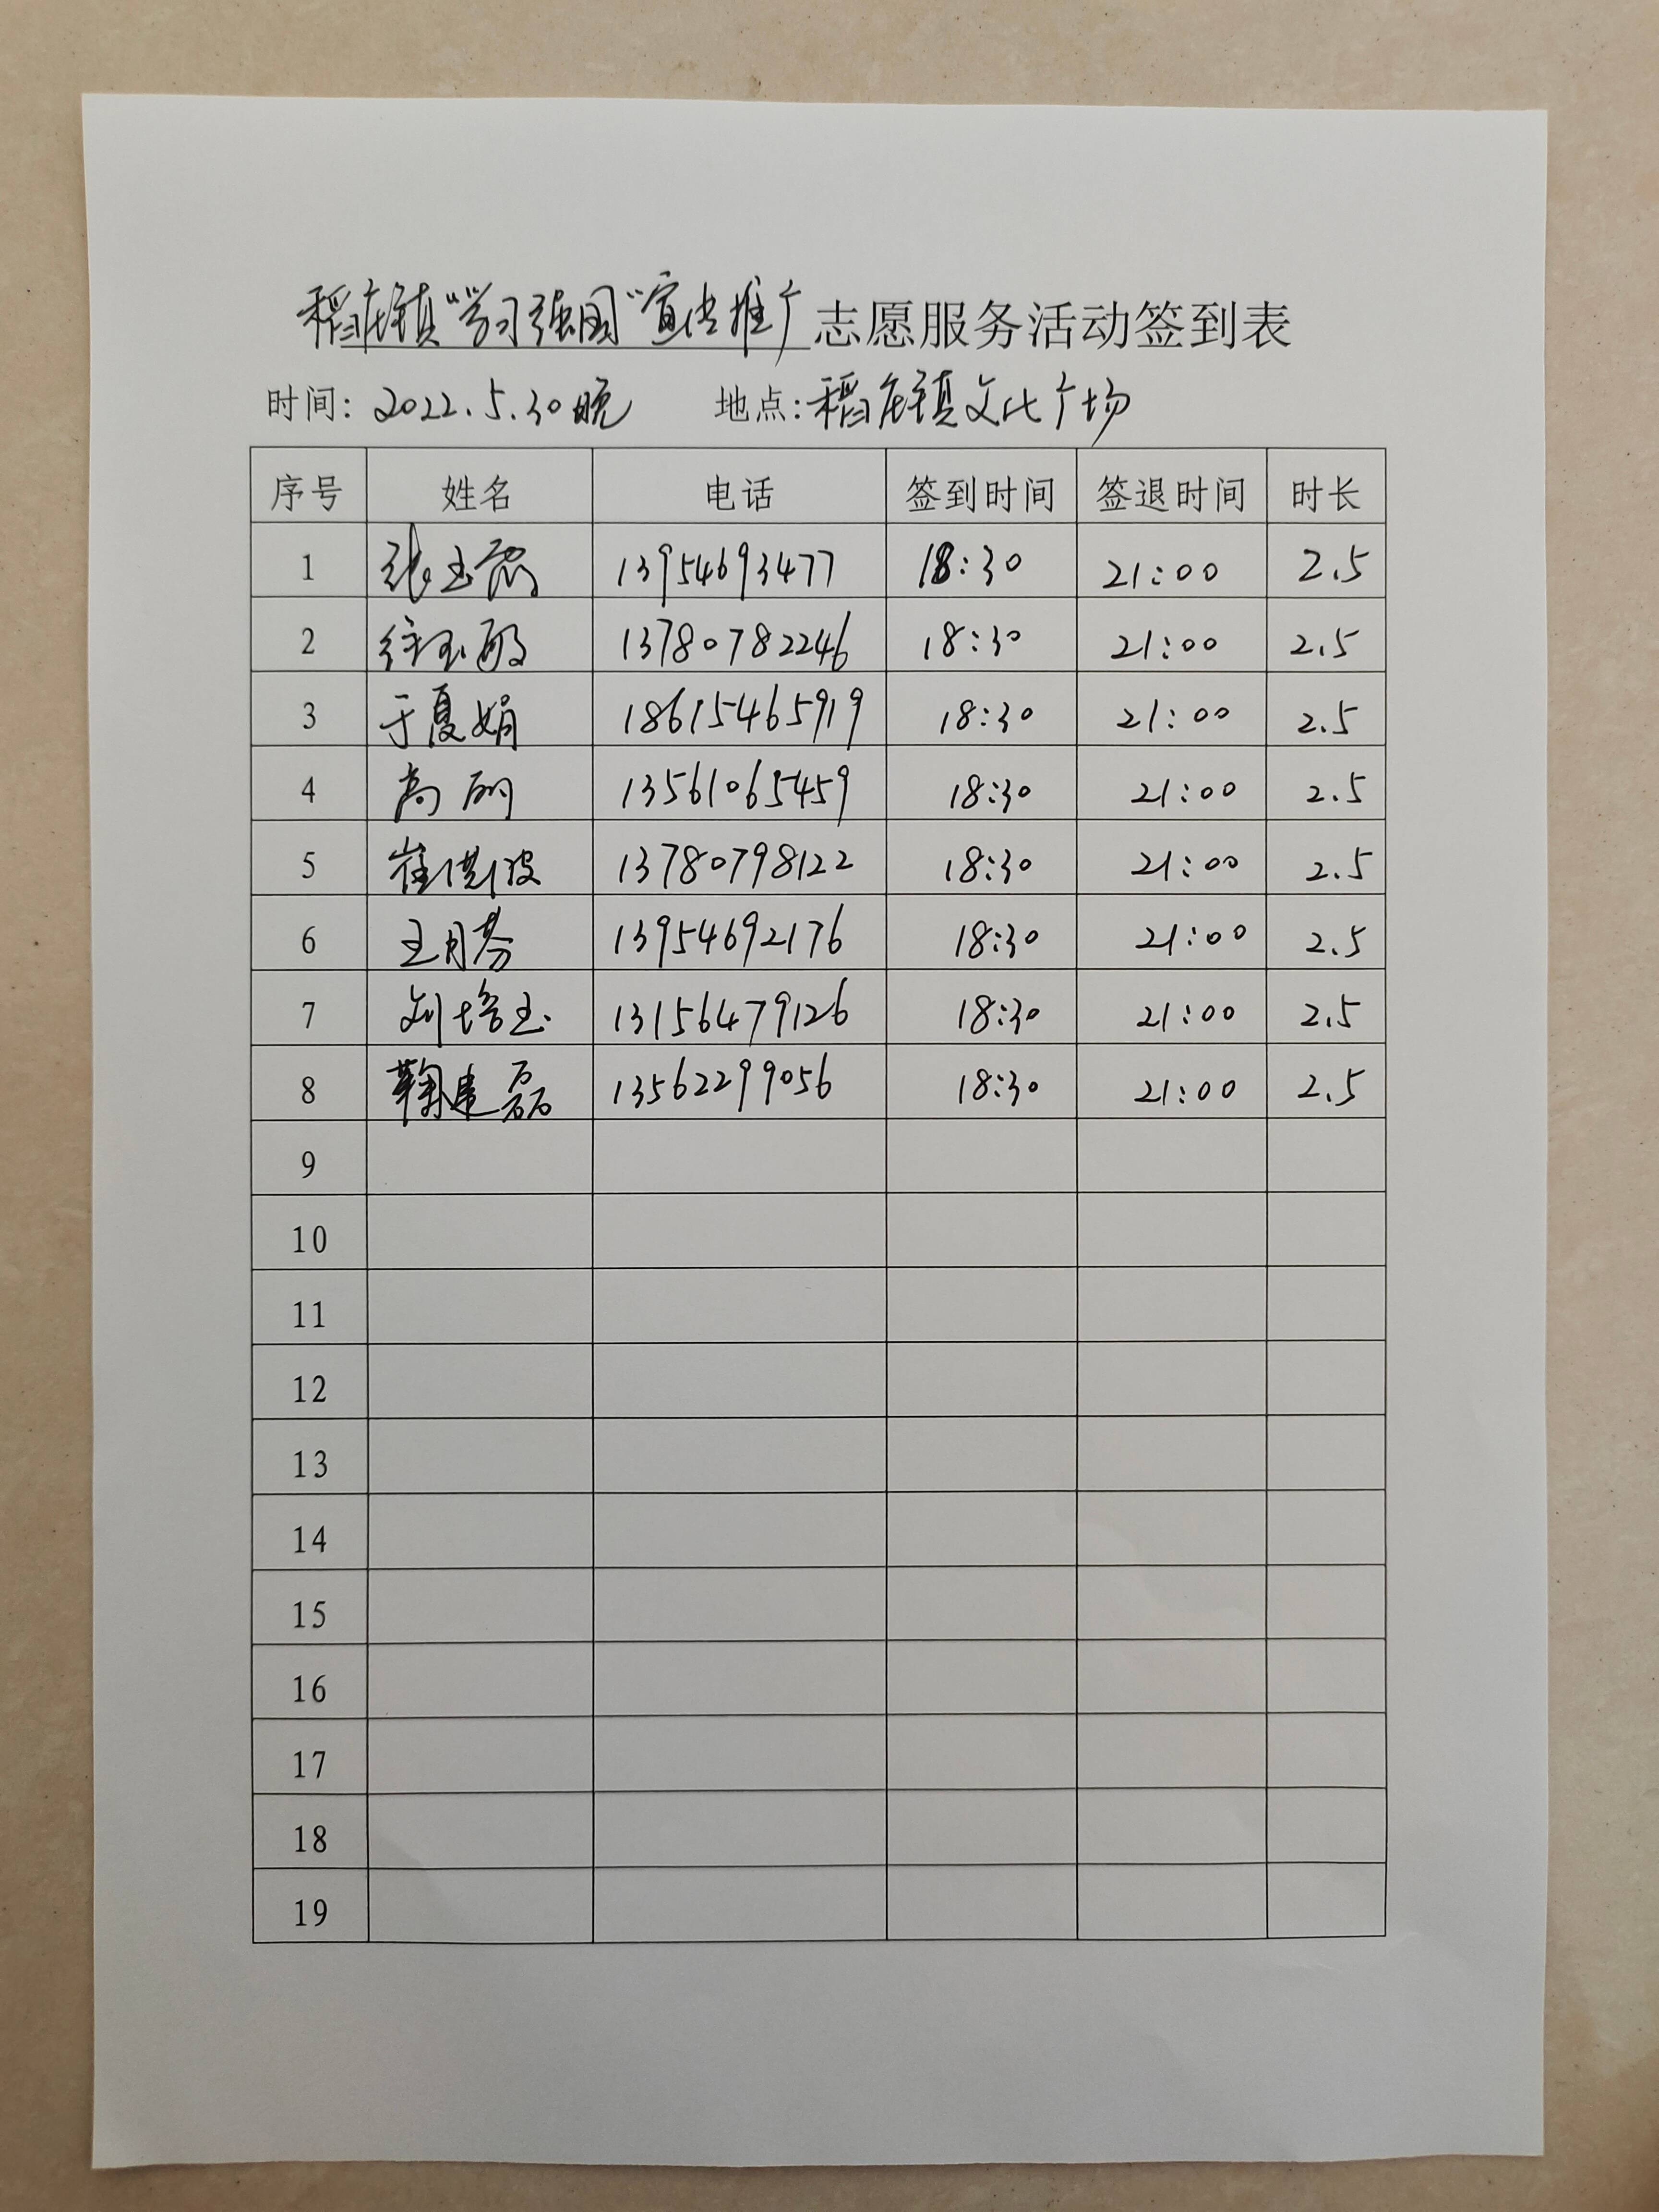 稻庄镇“学习强国”宣传推广志愿服务活动签到表
时间: 2022.5.30晚 地点: 稻庄镇文化广场
序号 姓名 电话 签到时间 签退时间 时长
1 张玉 13954693477 18:30 21:00 2.5
2 徐玉敏 13780782246 18:30 21:00 2.5
3 于夏娟 18615465919 18:30 21:00 2.5
4 高丽 13561065459 18:30 21:00 2.5
5 崔洪波 13780798122 18:30 21:00 2.5
6 王月芬 13954692176 18:30 21:00 2.5
7 刘培玉 13156479126 18:30 21:00 2.5
8 鞠建磊 13562299056 18:30 21:00 2.5
9
10
11
12
13
14
15
16
17
18
19